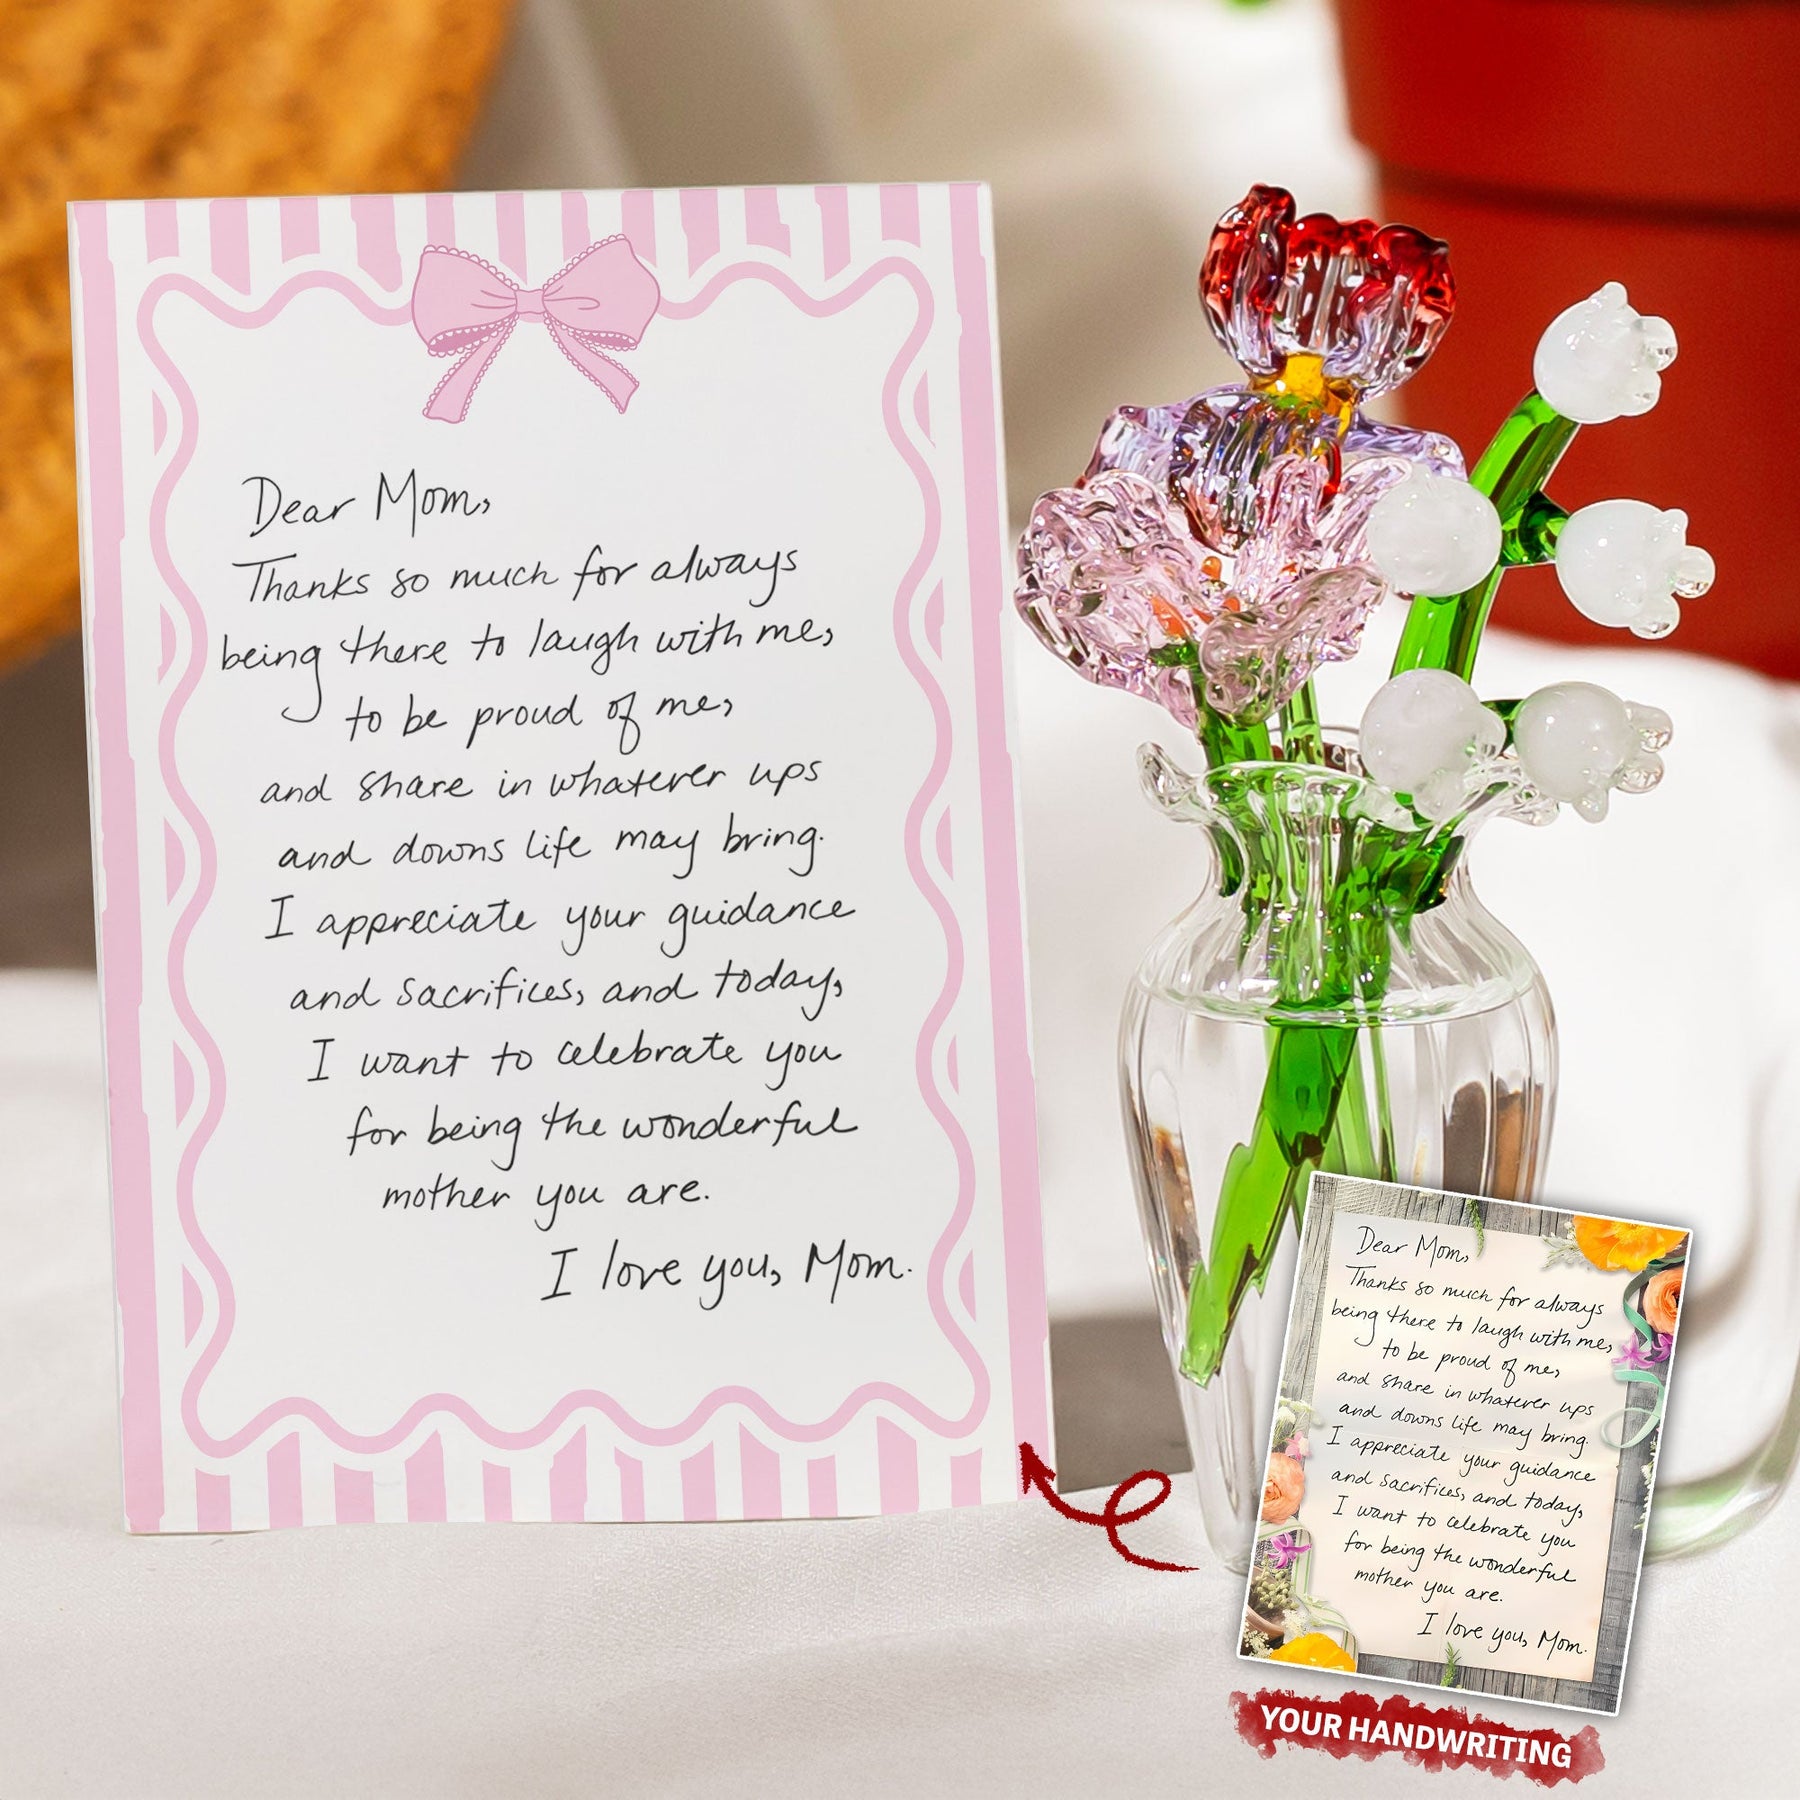 Dear Mom,
Thanks so much for always
being there to laugh with me,
to be proud of me,
and share in whatever ups
and downs life may bring.
I appreciate your guidance
and sacrifices, and today,
I want to celebrate you
for being the wonderful
mother you are.
I love you, Mom.
Dear Mom,
Thanks so much for always
being there to laugh with me,
to be proud of me,
and share in whatever ups
and downs life may bring.
I appreciate your guidance
and sacrifices, and today,
I want to celebrate you
for being the wonderful
mother you are.
I love you, Mom.
YOUR HANDWRITING